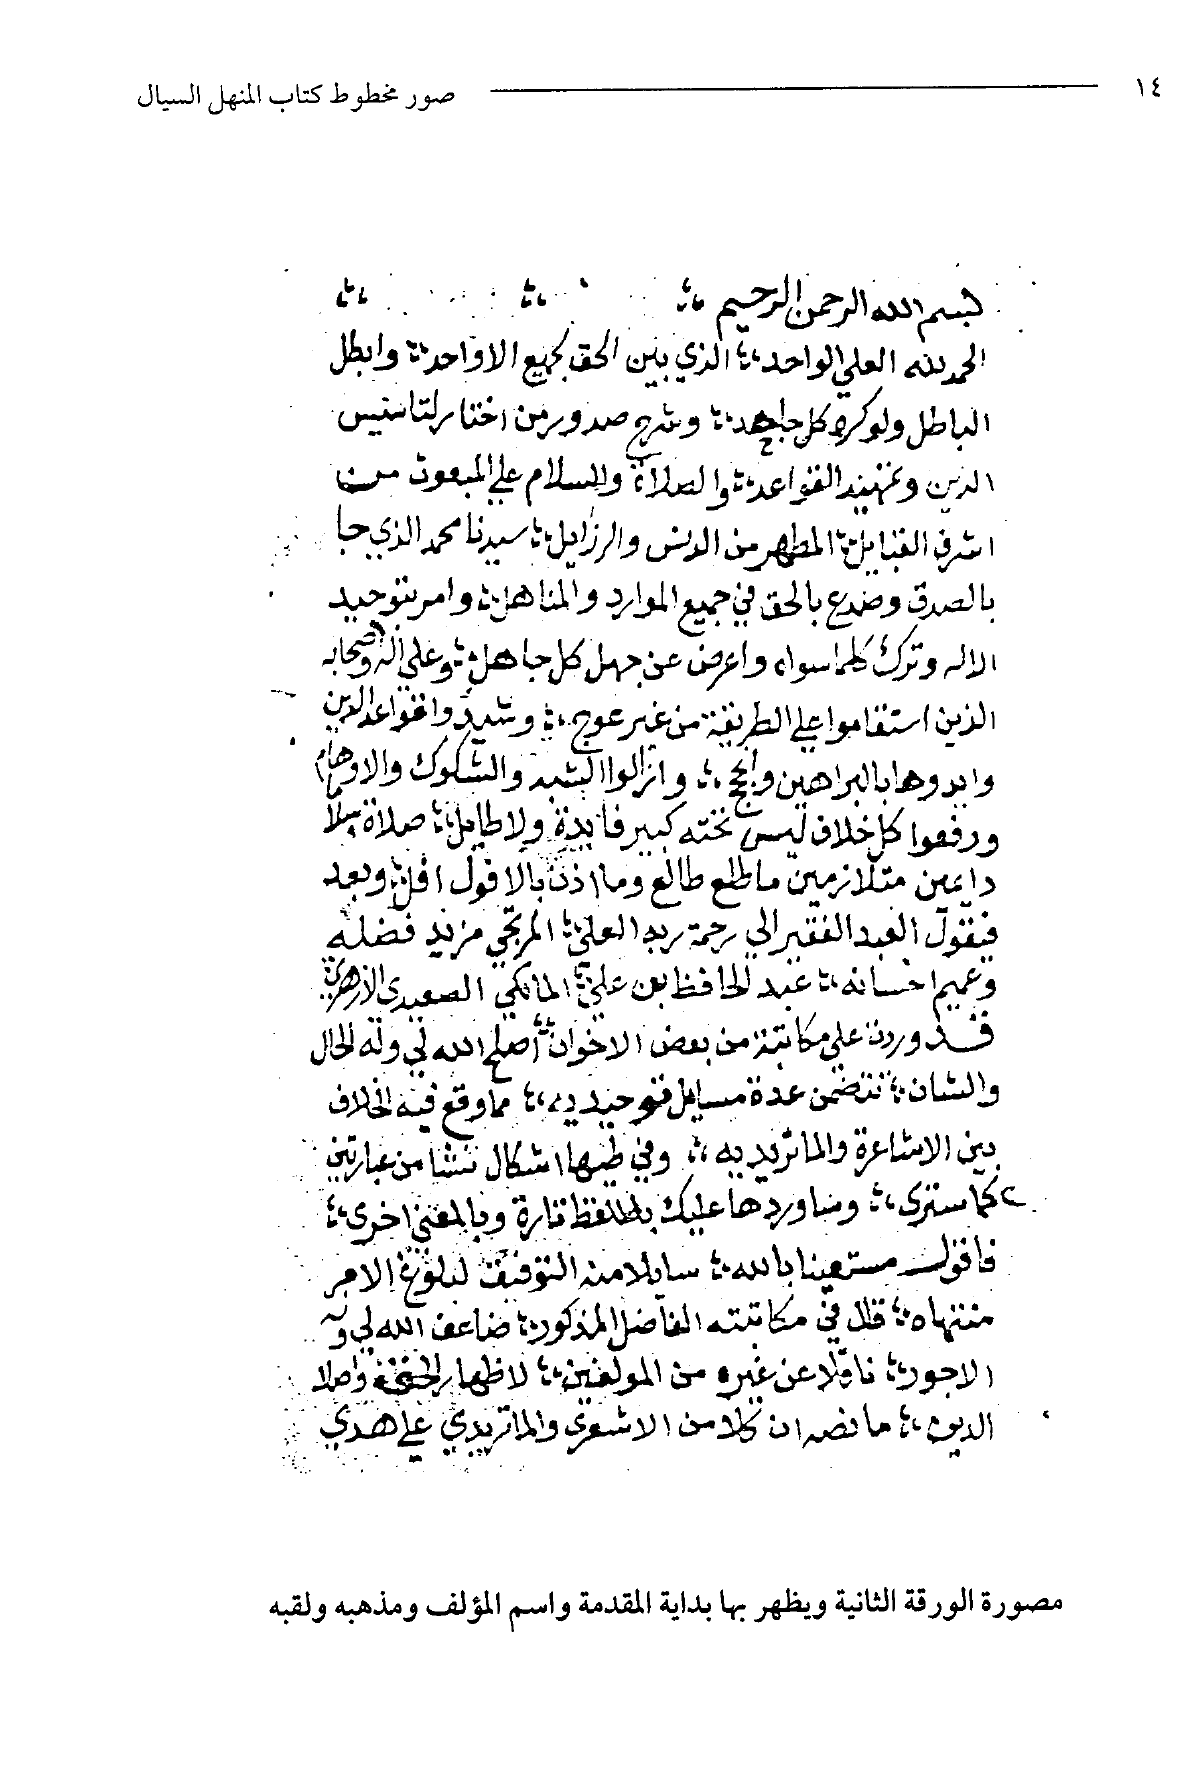 ١٤ صور مخطوط كتاب المنهل السيال
بسم الله الرحمن الرحيم
الحمد لله العلي الواحد الذي بين الحق لجميع الاواحد وابطل
الباطل ولو كره كل جاحد وشرح صدور من اختار لتاسيس
الدين وتمهيد القواعد والصلاة والسلام علي المبعوث من
اشرف القبايل المطهر من الدنس والرزايل سيدنا محمد الذي جا
بالصدق وصدع بالحق في جميع الموارد والمناهل وامر بتوحيد
الاله وترك كلما سواه واعرض عن جهل كل جاهل وعلي اله واصحابه
الذين استقاموا علي الطريقة من غير عوج وشيدوا قواعد الدين
وايدوها بالبراهين والحجج وازالوا الشبه والشكوك والاوهام
ورفعوا كل خلاف ليس تحته كبير فايدة ولا طايل صلاة وسلاما
دايمين متلازمين ما طلع طالع وما اذن بالافول افل وبعد
فيقول العبد الفقير الي رحمة ربه العلي المرتجي مزيد فضله
وعميم احسانه عبد الحافظ بن علي المالكي الصعيدي الازهري
قد وردت علي مكاتبة من بعض الاخوان اصلح الله لي وله الحال
والشان تتضمن عدة مسايل توحيديه مما وقع فيه الخلاف
بين الاشاعرة والماتريديه وفي طيها اشكال نشا من عبارتين
كما ستري وساوردها عليك باللفظ تارة وبالمعني اخري
فاقول مستعينا بالله سايلا منه التوفيق لبلوغ الامر
منتهاه قال في مكاتبته الفاضل المذكور ضاعف الله لي وله
الاجور ناقلا عن غيره من المولفين لاظهار الحق واصلا
الدين ما نصه ان كلا من الاشعري والماتريدي علي هدي
مصورة الورقة الثانية ويظهر بها بداية المقدمة واسم المؤلف ومذهبه ولقبه